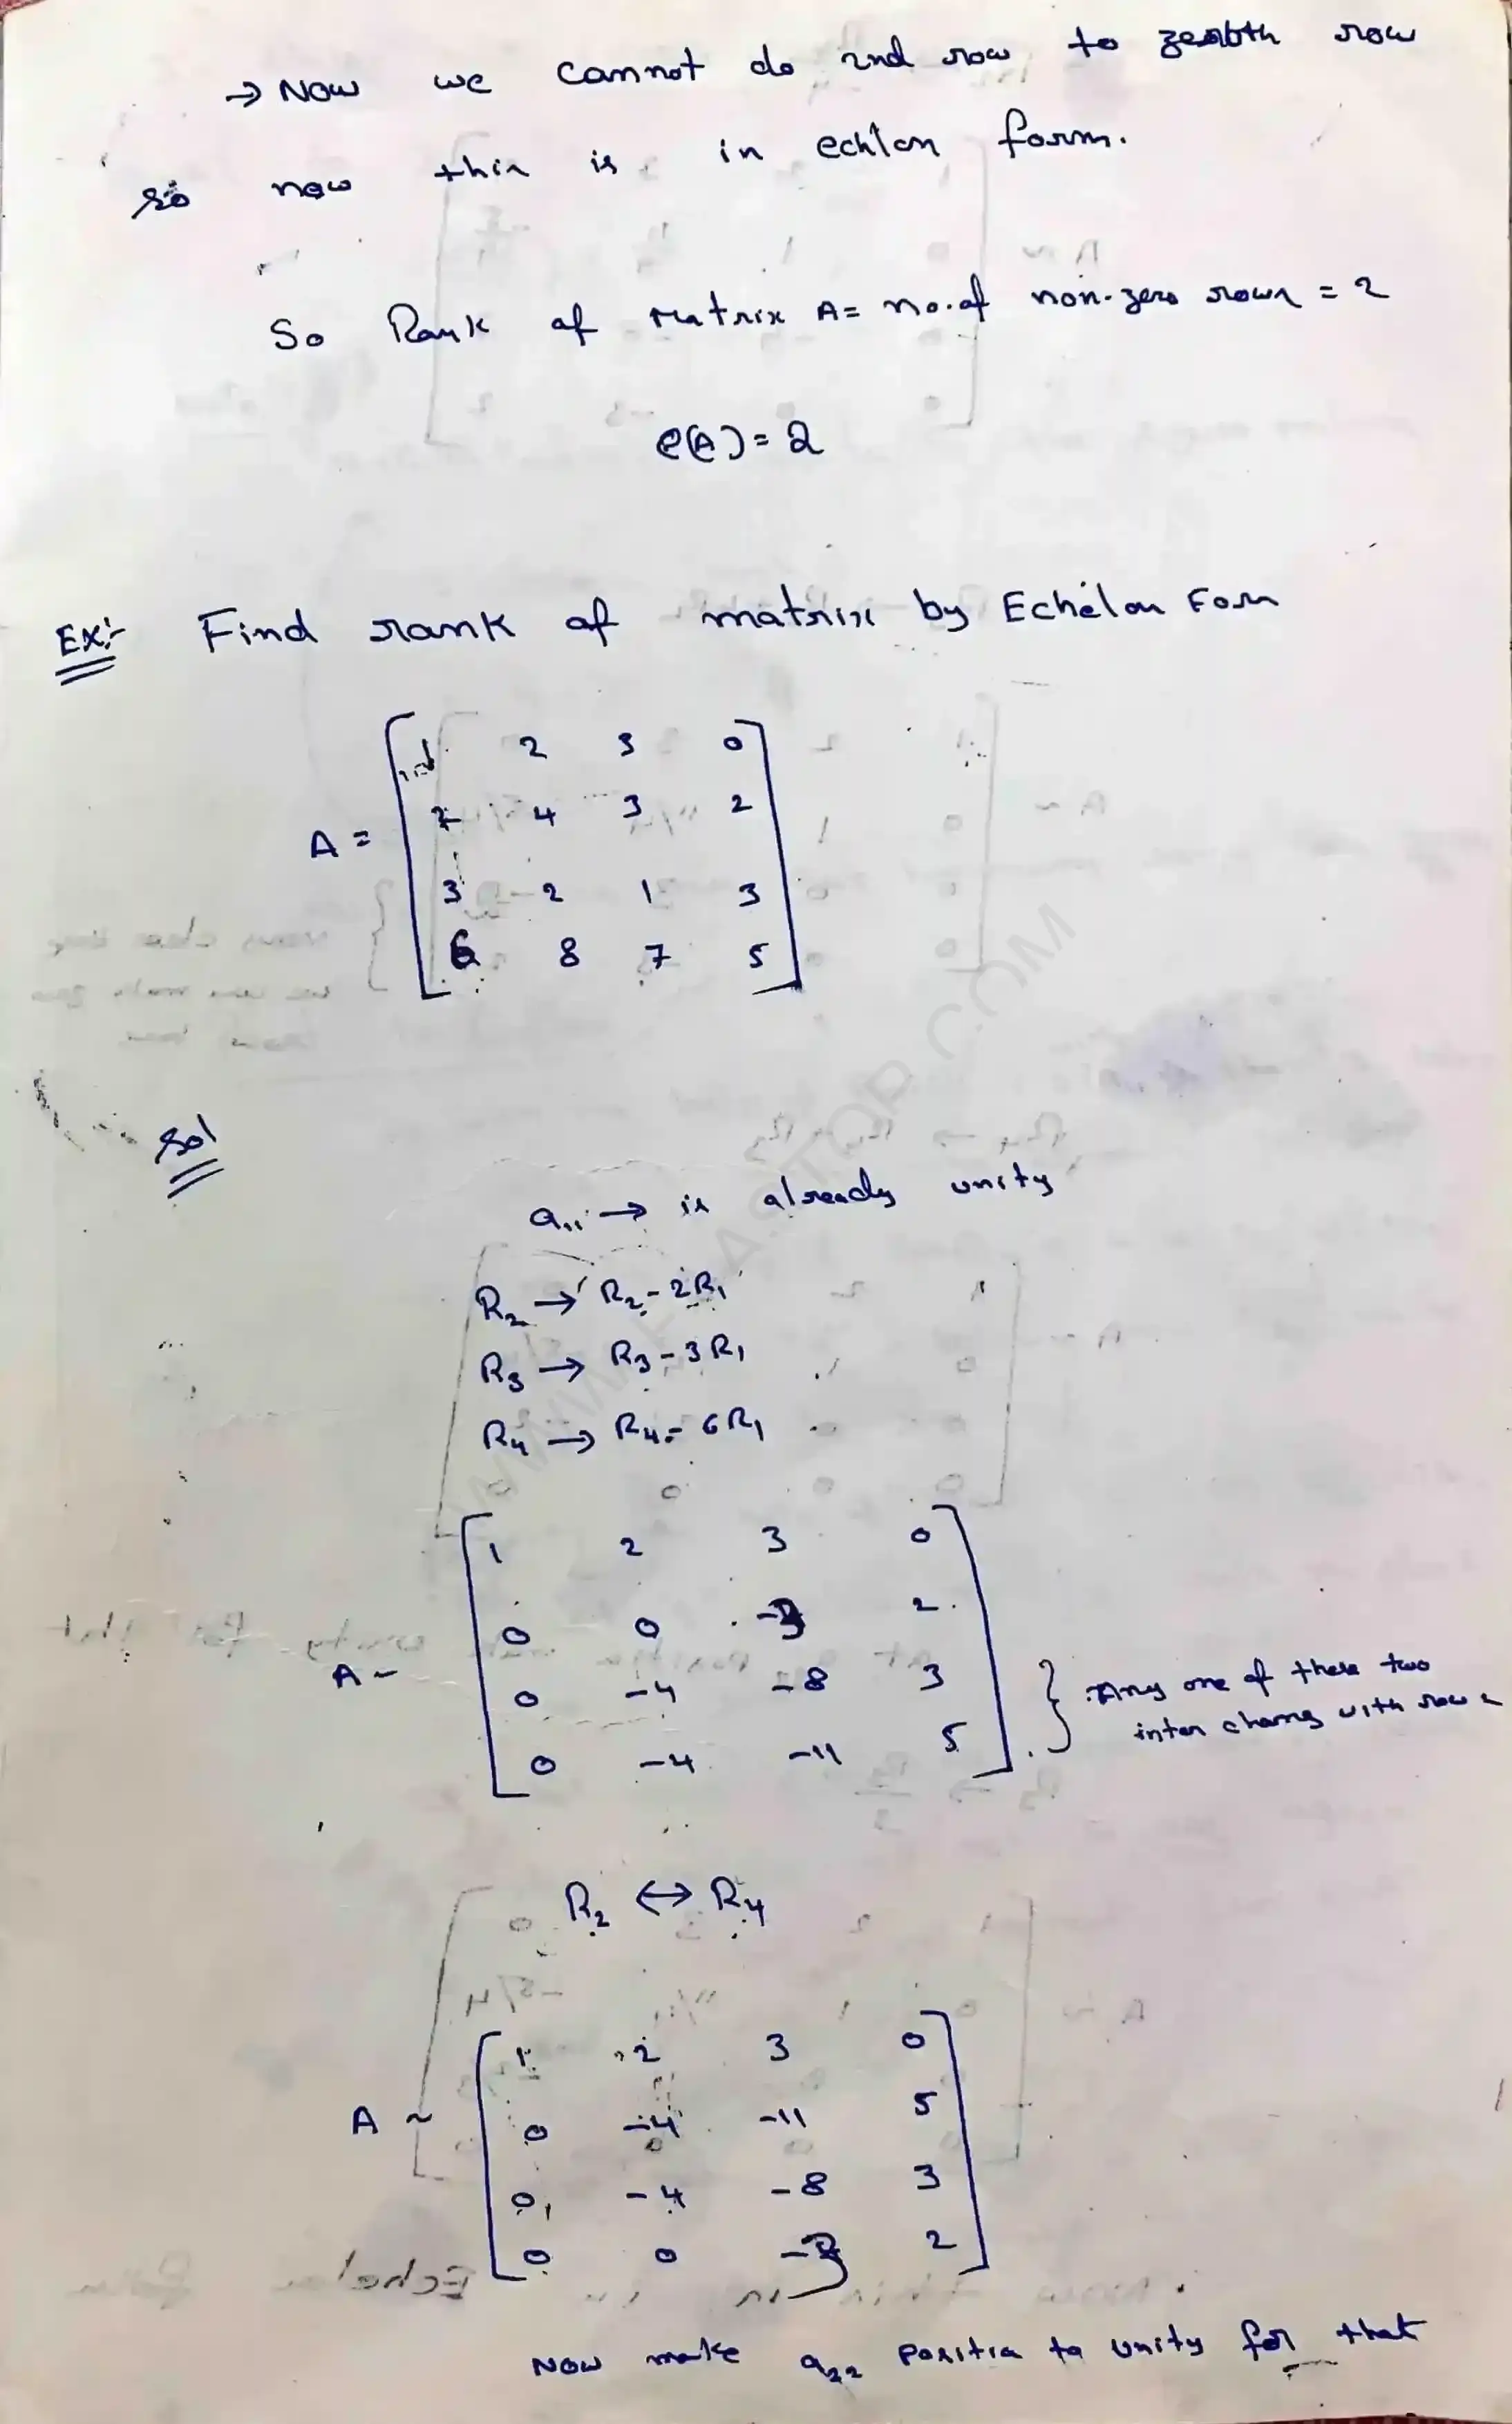 → Now we cannot do 2nd row to row
so now this is in echlon form.
So Rank of Matrix A = no. of non-zero rows = 2
ρ(A) = 2
Ex:- Find rank of matrix by Echelon Form
A = [ 1 2 3 0
2 4 3 2
3 2 1 3
6 8 7 5 ]
Sol
a₁₁ → is already unity
R₂ → R₂ - 2R₁
R₃ → R₃ - 3R₁
R₄ → R₄ - 6R₁
A ~ [ 1 2 3 0
0 0 -3 2
0 -4 -8 3
0 -4 -11 5 ] } Any one of these two
inter chang with row 2
R₂ ↔ R₄
A ~ [ 1 2 3 0
0 -4 -11 5
0 -4 -8 3
0 0 -3 2 ]
Now make a₂₂ positin to unity for that